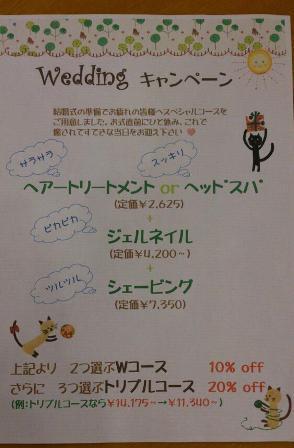 Wedding キャンペーン
結婚式の準備でお疲れの皆様へスペシャルコースを
ご用意しました。お式直前にひと休み。これで
癒されてすてきな当日をお迎え下さい
サラサラ
スッキリ
ヘアートリートメント or ヘッドスパ
(定価¥2,625)
+
ピカピカ
ジェルネイル
(定価¥4,200~)
+
ツルツル
シェービング
(定価¥7,350)
上記より 2つ選ぶWコース 10% off
さらに 3つ選ぶトリプルコース 20% off
(例:トリプルコースなら¥14,175~→¥11,340~)